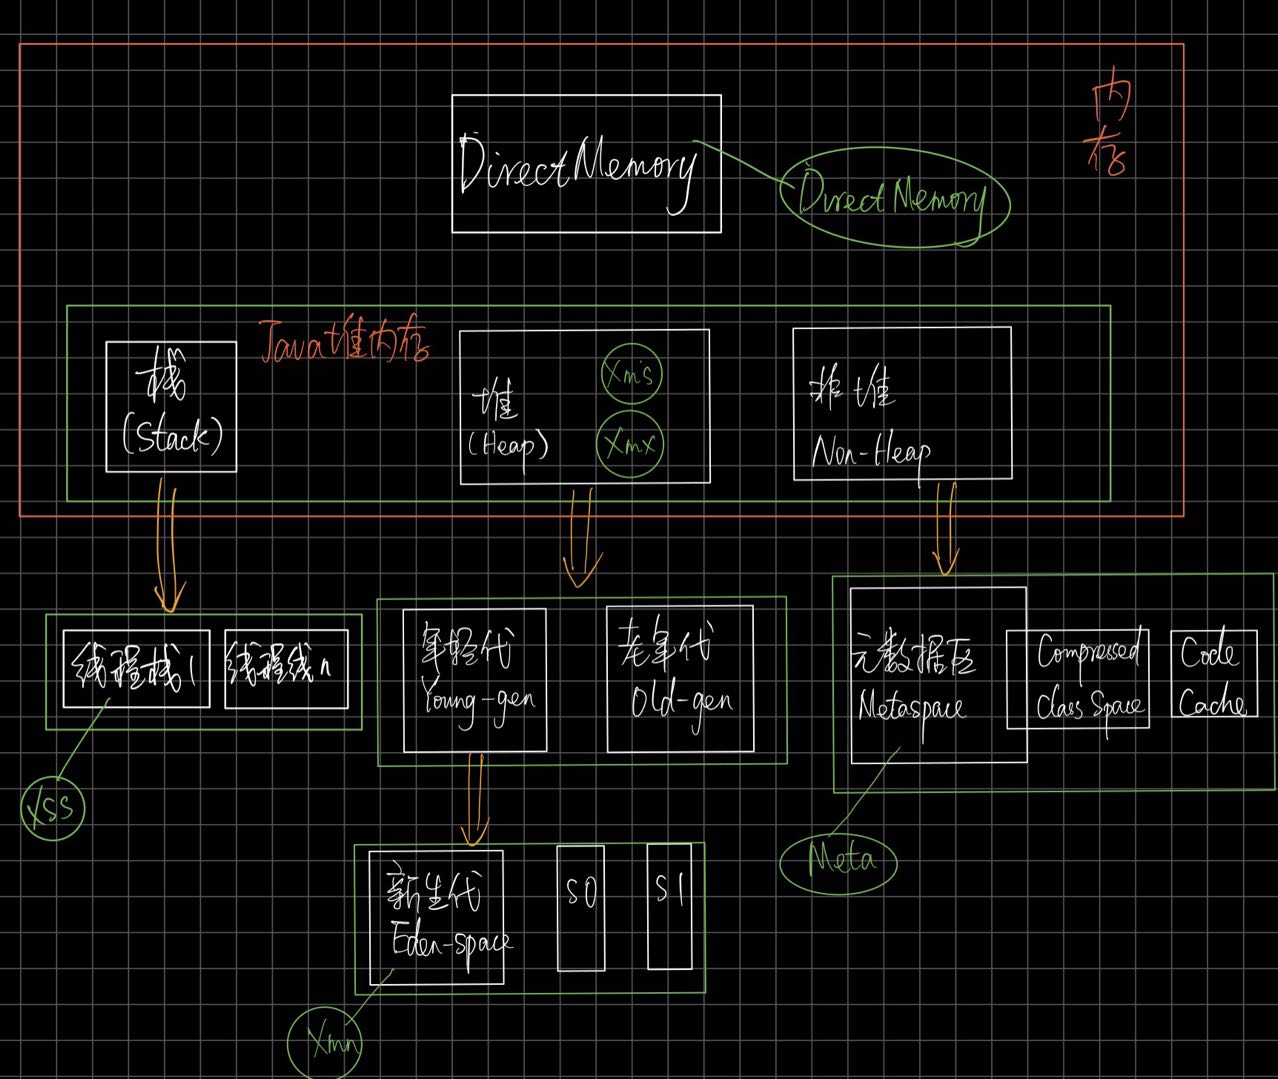 内
存
DirectMemory
DirectMemory
Java堆内存
栈
(Stack)
堆
(Heap)
Xms
Xmx
非堆
Non-Heap
线程栈1
线程线n
年轻代
Young-gen
老年代
Old-gen
元数据区
Metaspace
Compressed
Class Space
Code
Cache
Xss
新生代
Eden-space
S0
S1
Meta
Xmn